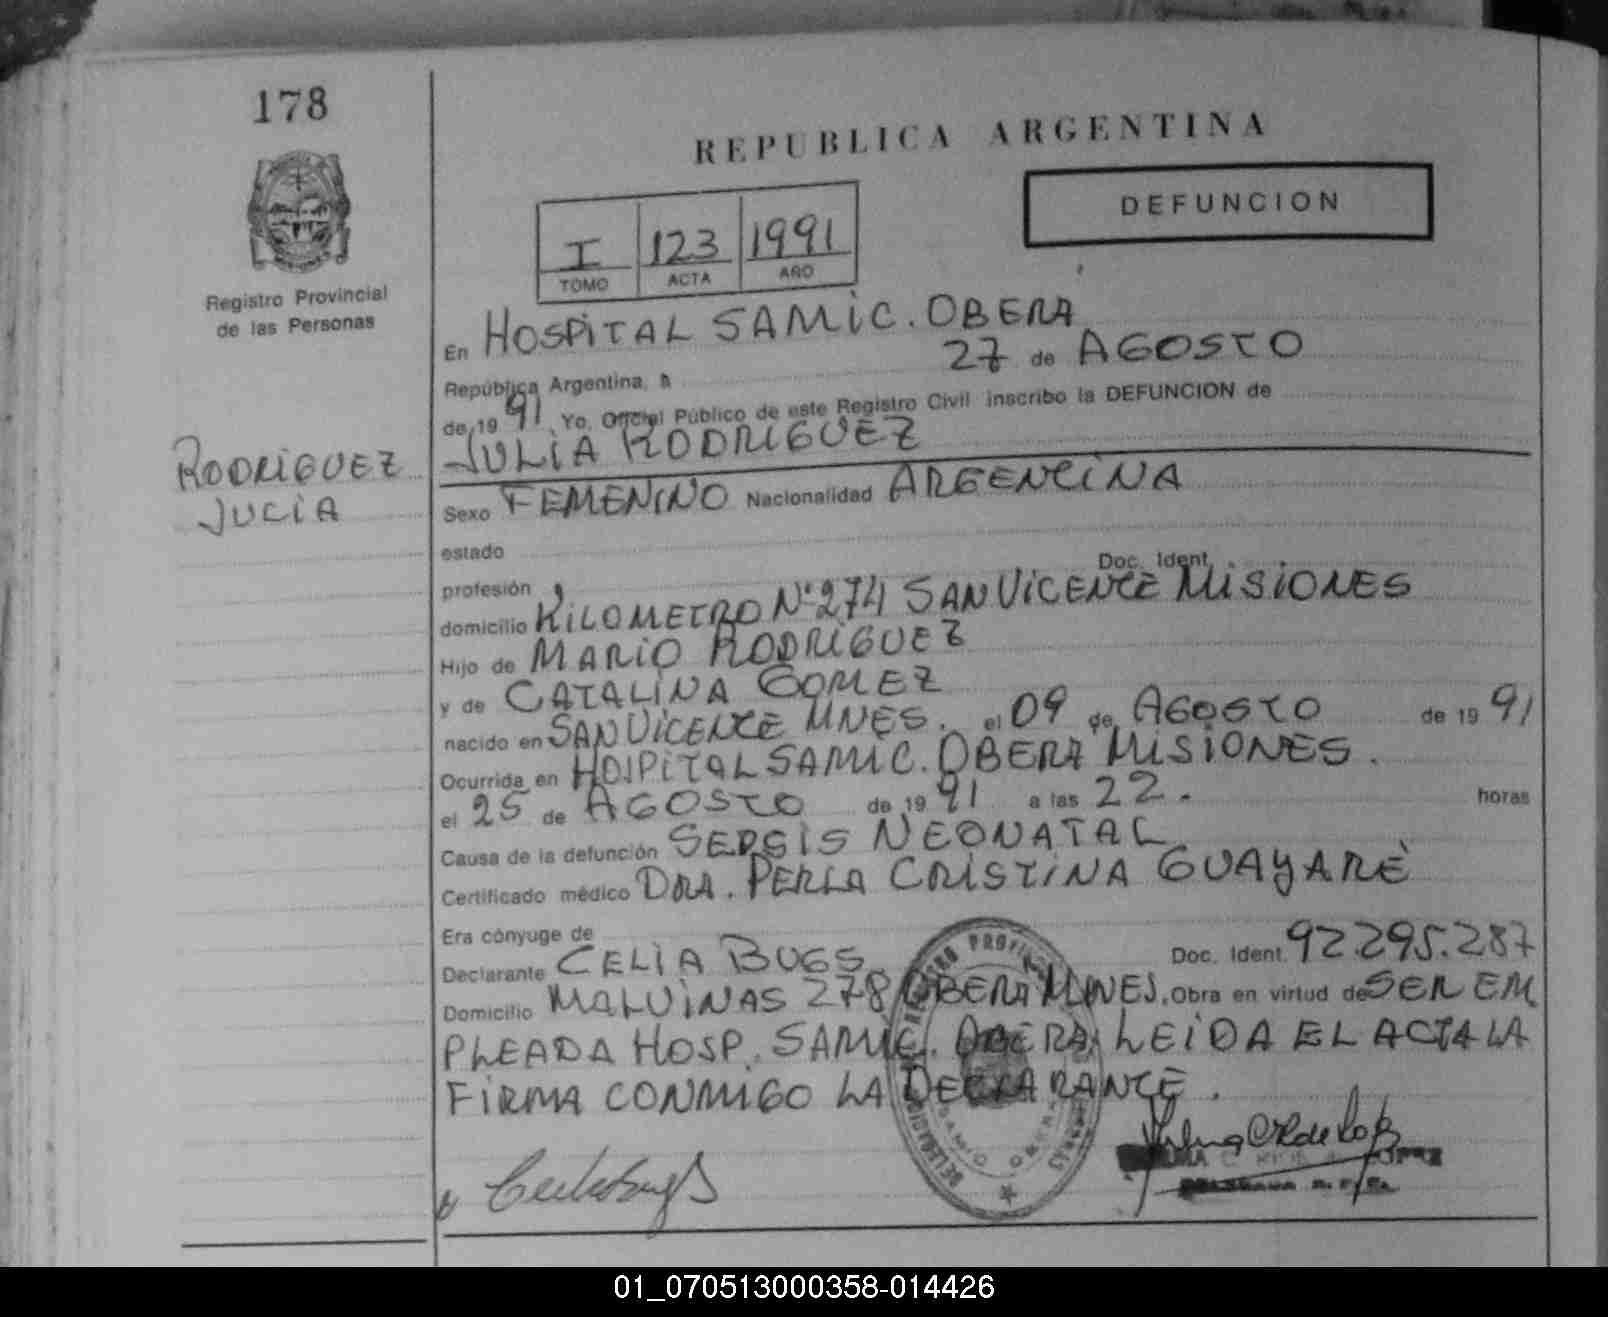 178
REPUBLICA ARGENTINA
DEFUNCION
I 123 1991
TOMO ACTA AÑO
Registro Provincial
de las Personas
En HOSPITAL SAMIC. OBERA
República Argentina, a 27 de AGOSTO
de 19 91, Yo, Oficial Público de este Registro Civil inscribo la DEFUNCION de
JULIA RODRIGUEZ
RODRIGUEZ
JULIA
Sexo FEMENINO Nacionalidad ARGENTINA
estado
profesión Doc. Ident.
domicilio KILOMETRO Nº 274 SAN VICENTE MISIONES
Hijo de MARIO RODRIGUEZ
y de CATALINA GOMEZ
nacido en SAN VICENTE MNES. el 09 de AGOSTO de 19 91
Ocurrida en HOSPITAL SAMIC. OBERA MISIONES.
el 25 de AGOSTO de 19 91 a las 22. horas
Causa de la defunción SEPSIS NEONATAL
Certificado médico DRA. PERLA CRISTINA GUAYARÈ
Era cónyuge de
Declarante CELIA BUGS Doc. Ident. 92.295.287
Domicilio MALVINAS 278 OBERA MNES. Obra en virtud de SER EM
PLEADA HOSP. SAMIC. OBERA LEIDA EL ACTA LA
FIRMA CONMIGO LA DECLARANTE.
01_070513000358-014426